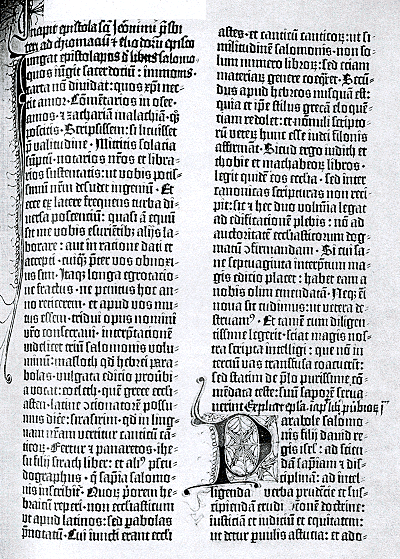 Incipit epistola sancti Iheronimi p̄sbi-
teri ad chromaciū ⁊ eliodorū episco-
Iungat epistola pos de libris salomo-
quos iūgit sacerdociū: immo nis.
carta nō diuidat: quos xp̄i nec-
tit amor. Cōmētarios in osee·
amos· ⁊ zachariā malachiā· qꝫ
poscitis. Scripsissem: si licuisset
p̄ valitudine. Mittitis solacia
sumptuū· notarios nr̄os ⁊ libra-
rios sustentatis: ut vobis potis-
simū nr̄m desudet ingeniū. Et
ecce ex latere frequens turba di-
uersa poscentiū: quasi aut equū
sit me vobis esuriētibꝫ alijs la-
borare: aut in ratione dati et
accepti· cuiq̄ꝫ preter vos obnoxi-
us sim. Itaqꝫ longa egrotacio-
ne fractus· ne penitus hoc an-
no reticerem· et apud vos mu-
tus essem· tridui opus nomini
vr̄o consecraui· interp̄tationē
videlicet triū salomonis volu-
minū: masloth qd̄ hebrei para-
bolas· vulgata editio prouerbi-
a vocat: coeleth· quē grece eccle-
siasten· latine ↄcionatorē possu-
mus dicere: sirasirim· qd̄ in ling-
uam nr̄am vertitur canticū cā-
ticoꝝ. Fertur et panaretos· ihe-
su filij sirach liber: et aliꝰ pseu-
dographus· q̇ sapiētia salomo-
nis inscribitur. Quoꝝ priorem he-
braicum reperi· non ecclesiasticum
ut apud latinos: sed parabolas
p̄notatū. Cui iuncti erant eccl's-
iastes· et canticū canticoꝝ: ut si-
militudinē salomonis· non so-
lum numero libroꝝ: sed etiam
materiaꝝ genere coequaret. Secū-
dus apud hebreos nusquā est:
quia et ip̄e stilus grecā eloquē-
tiam redolet: et nōnulli scripto-
rū veterū hunc esse iudei filonis
affirmant. Sicut ergo iudith et
thobie et machabeoꝝ libros·
legit quidē eos ecclesia· sed inter
canonicas scripturas non reci-
pit: sic ⁊ hec duo volumina legat
ad edificationē plebis: nō ad
auctoritatē ecclesiasticorum dog-
matū ↄfirmandam. Si cui sa-
ne septuaginta interpretum ma-
gis editio placet: habet eam a
nobis olim emēdatā. Neqꝫ eī
noua sic cudimus: ut vetera de-
struamꝰ. Et tamē cum diligen-
tissime legerit· sciat magis nos-
tra scripta intelligi: que nō in
terciū vas trāsfusa coacuerīt:
sed statim de p̄lo purissime cō-
mēdata teste: suū saporē serua-
uerint. Explicit epl'a. Incipiūt
Parabole salomo-
nis filij dauid re-
gis isrl': ad scien-
dā sapiam ⁊ dis-
ciplinā: ad intel-
ligenda verba prudētie et sus-
cipiendā erudicionē doctrine:
iusticiam et iudiciū et equitatem:
ut detur paruulis astucia· et ado-